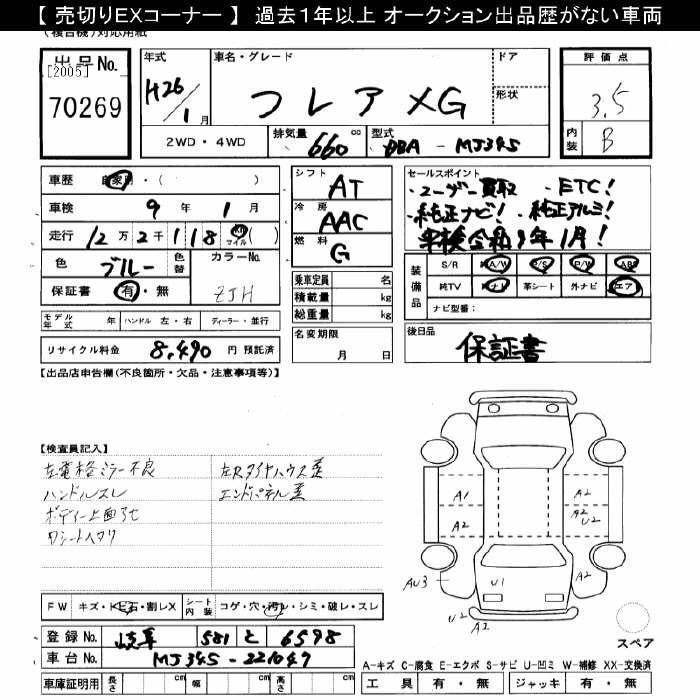 【 売切りEXコーナー 】 過去１年以上 オークション出品歴がない車両
(複合機)対応用紙
出品No.
[2005]
70269
年式
H26/1月
車名・グレード
フレア XG
ドア
形状
評価点
3.5
内装 B
2WD・4WD
排気量 660 cc
型式 DBA - MJ34S
車歴 自家用・( )
車検 9年 1月
走行 12万2千118 Km マイル ( )
色 ブルー 色替
カラーNo. ZJH
保証書 有・無
シフト AT
冷房 AAC
燃料 G
乗車定員 名
積載量 kg
総重量 kg
セールスポイント
・ユーザー買取 ・ETC!
・純正ナビ! ・純正アルミ!
車検令和9年1月!
装備品
S/R 純A/W P/S P/W ABS
純TV 純ナビ 革シート 外ナビ エアB
ナビ型番:
モデル年式 年 ハンドル 左・右 ディーラー・並行
リサイクル料金 8,490 円 預託済
名変期限 月 日
後日品 保証書
【出品店申告欄(不良箇所・欠品・注意事項等)】
【検査員記入】
左電格ミラー不良 左Rタイヤハウス歪
ハンドルスレ エンドパネル歪
ボディー上面アセ
Dシートヘタリ
A1
A2
A2
A2
U2
AU3
U1
A2
U2
A2
スペア
FW キズ・トビ石・割レX
シート内装 コゲ・穴・汚レ・シミ・破レ・スレ
登録No. 岐阜 581 と 6598
車台No. MJ34S-221049
車庫証明用 長さ cm 幅 cm 高さ cm
A-キズ C-腐食 E-エクボ S-サビ U-凹ミ W-補修 XX-交換済
工具 有・無 ジャッキ 有・無